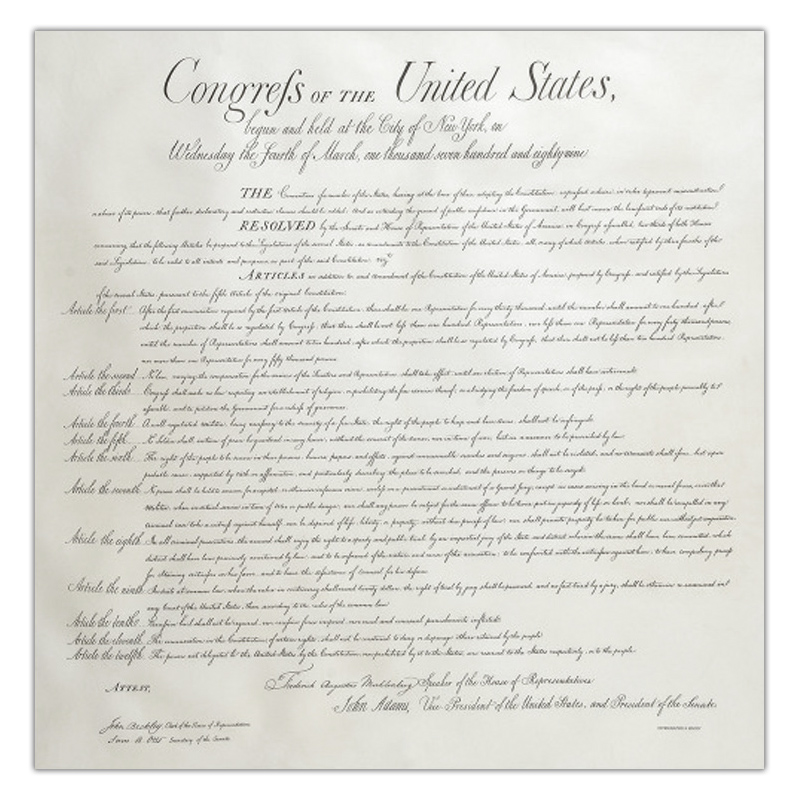 Congreſs OF THE United States,
begun and held at the City of New York, on
Wednesday the Fourth of March, one thousand seven hundred and eighty nine
THE Conventions of a number of the States, having at the time of their adopting the Constitution, expressed a desire, in order to prevent misconstruction
or abuse of its powers, that further declaratory and restrictive clauses should be added: And as extending the ground of public confidence in the Government, will best ensure the beneficent ends of its institution
RESOLVED by the Senate and House of Representatives of the United States of America, in Congreſs aſsembled, two thirds of both Houses
concurring, that the following Articles be proposed to the Legislatures of the several States, as amendments to the Constitution of the United States, all, or any of which Articles, when ratified by three fourths of the
said Legislatures, to be valid to all intents and purposes, as part of the said Constitution. viz.t
ARTICLES in addition to, and Amendment of the Constitution of the United States of America, proposed by Congreſs, and ratified by the Legislatures
of the several States, pursuant to the fifth Article of the original Constitution.
Article the first. After the first enumeration required by the first Article of the Constitution, there shall be one Representative for every thirty thousand, until the number shall amount to one hundred, after
which, the proportion shall be so regulated by Congreſs, that there shall be not leſs than one hundred Representatives, nor leſs than one Representative for every forty thousand persons,
until the number of Representatives shall amount to two hundred, after which the proportion shall be so regulated by Congreſs, that there shall not be leſs than two hundred Representatives,
nor more than one Representative for every fifty thousand persons.
Article the second. No law, varying the compensation for the services of the Senators and Representatives, shall take effect, until an election of Representatives shall have intervened.
Article the third. Congreſs shall make no law respecting an establishment of religion, or prohibiting the free exercise thereof; or abridging the freedom of speech, or of the preſs; or the right of the people peaceably to
aſsemble, and to petition the Government for a redreſs of grievances.
Article the fourth. A well regulated militia, being neceſsary to the security of a free State, the right of the people to keep and bear arms, shall not be infringed.
Article the fifth. No Soldier shall, in time of peace be quartered in any house, without the consent of the owner, nor in time of war, but in a manner to be prescribed by law.
Article the sixth. The right of the people to be secure in their persons, houses, papers, and effects, against unreasonable searches and seizures, shall not be violated, and no warrants shall iſsue, but upon
probable cause, supported by oath or affirmation, and particularly describing the place to be searched, and the persons or things to be seized.
Article the seventh. No person shall be held to answer for a capital, or otherwise infamous crime, unleſs on a presentment or indictment of a Grand Jury, except in cases arising in the land or naval forces, or in the
Militia, when in actual service in time of War or public danger; nor shall any person be subject for the same offence to be twice put in jeopardy of life or limb; nor shall be compelled in any
criminal case to be a witneſs against himself, nor be deprived of life, liberty, or property, without due proceſs of law; nor shall private property be taken for public use without just compensation.
Article the eighth. In all criminal prosecutions, the accused shall enjoy the right to a speedy and public trial, by an impartial jury of the State and district wherein the crime shall have been committed, which
district shall have been previously ascertained by law, and to be informed of the nature and cause of the accusation; to be confronted with the witneſses against him; to have compulsory proceſs
for obtaining witneſses in his favor, and to have the aſsistance of counsel for his defence.
Article the ninth. In suits at common law, where the value in controversy shall exceed twenty dollars, the right of trial by jury shall be preserved, and no fact tried by a jury, shall be otherwise re-examined in
any Court of the United States, than according to the rules of the common law.
Article the tenth. Exceſsive bail shall not be required, nor exceſsive fines imposed, nor cruel and unusual punishments inflicted.
Article the eleventh. The enumeration in the Constitution, of certain rights, shall not be construed to deny or disparage others retained by the people.
Article the twelfth. The powers not delegated to the United States by the Constitution, nor prohibited by it to the States, are reserved to the States respectively, or to the people.
ATTEST,
Frederick Augustus Muhlenberg Speaker of the House of Representatives
John Adams, Vice-President of the United States, and President of the Senate.
John Beckley, Clerk of the House of Representatives
Sam. A. Otis Secretary of the Senate.